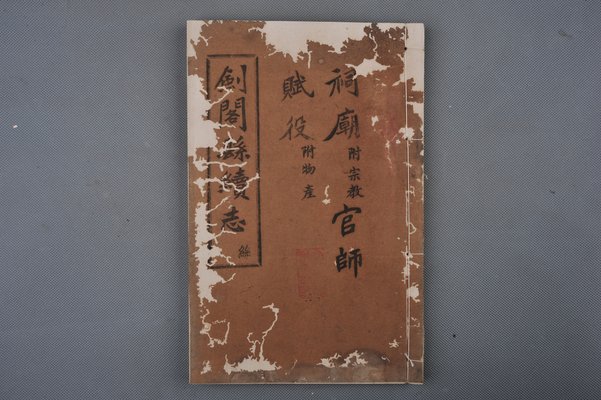 祠廟附宗教 官師
賦役附物產
劍閣縣續志 絲